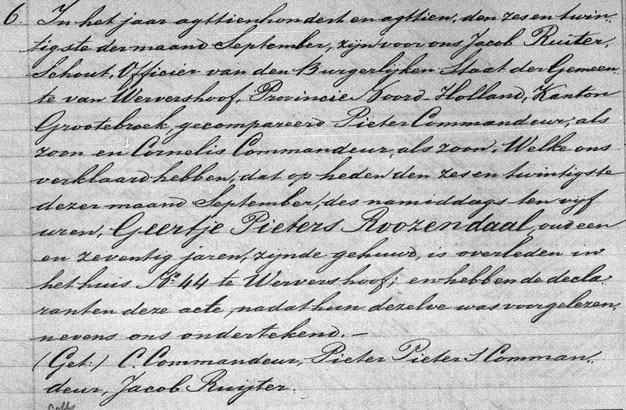 6. In het jaar agttienhondert en agttien, den zes en twin-
tigste der maand September, zijn voor ons Jacob Ruijter,
Schout, Officier van den Burgerlijken Staat der Gemeen-
te van Wervershoof, Provincie Noord-Holland, Kanton
Grootebroek, gecompareerd Pieter Commandeur, als
zoon en Cornelis Commandeur, als zoon. Welke ons
verklaard hebben, dat op heden den zes en twintigste
dezer maand September, des namiddags ten vijf
uren, Geertje Pieters Roozendaal, oud een
en zeventig jaren, zijnde gehuwd, is overleden in
het huis No. 44 te Wervershoof; en hebben de decla-
ranten deze acte, nadat hun dezelve was voorgelezen,
nevens ons ondertekend. —
(Get:) C. Commandeur, Pieter Pieter S Comman-
deur, Jacob Ruijter.